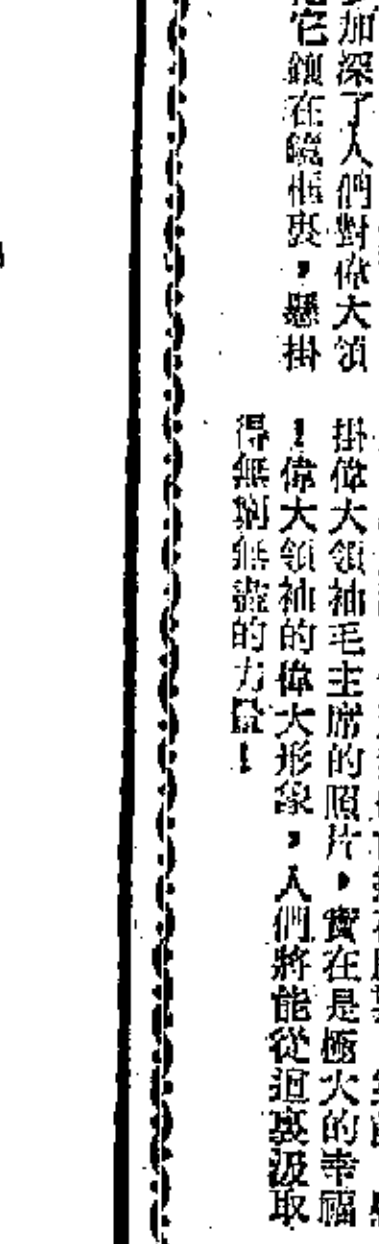 加深了人們對偉大領
它鑲在鏡框裏,懸掛
掛偉大領袖毛主席的照片,實在是極大的幸福
!偉大領袖的偉大形象,人們將能從這裏汲取
得無窮無盡的力量!